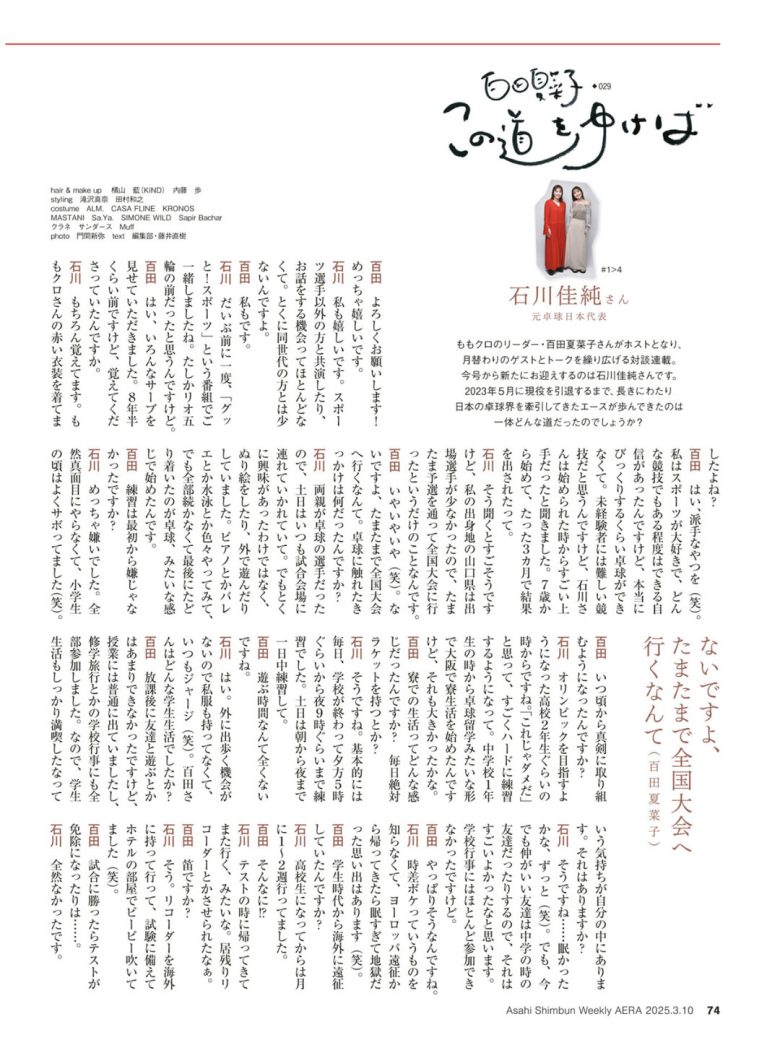 百田夏菜子
◆029
この道をゆけば
hair & make up 横山 藍(KIND) 内藤 歩
styling 滝沢真奈 田村和之
costume ALM. CASA FLINE KRONOS
MASTANI Sa.Ya. SIMONE WILD Sapir Bachar
クラネ サンダース Muff
photo 門間新弥 text 編集部・藤井直樹
#1>4
石川佳純さん
元卓球日本代表
ももクロのリーダー・百田夏菜子さんがホストとなり、
月替わりのゲストとトークを繰り広げる対談連載。
今号から新たにお迎えするのは石川佳純さんです。
2023年5月に現役を引退するまで、長きにわたり
日本の卓球界を牽引してきたエースが歩んできたのは
一体どんな道だったのでしょうか?
百田 よろしくお願いします!
めっちゃ嬉しいです。
石川 私も嬉しいです。スポー
ツ選手以外の方と共演したり、
お話をする機会ってほとんどな
くて。とくに同世代の方とは少
ないんですよ。
百田 私もです。
石川 だいぶ前に一度、「グッ
と!スポーツ」という番組でご
一緒しましたね。たしかリオ五
輪の前だったと思うんですけど。
百田 はい、いろんなサーブを
見せていただきました。8年半
くらい前ですけど、覚えてくだ
さっていたんですか。
石川 もちろん覚えてます。も
もクロさんの赤い衣装を着てま
したよね?
百田 はい、派手なやつを(笑)。
私はスポーツが大好きで、どん
な競技でもある程度はできる自
信があったんですけど、本当に
びっくりするくらい卓球ができ
なくて。未経験者には難しい競
技だと思うんですけど、石川さ
んは始められた時からすごい上
手だったと聞きました。7歳か
ら始めて、たった3カ月で結果
を出されたって。
石川 そう聞くとすごそうです
けど、私の出身地の山口県は出
場選手が少なかったので、たま
たま予選を通って全国大会に行
ったというだけのことなんです。
百田 いやいやいや(笑)。な
いですよ、たまたまで全国大会
へ行くなんて。卓球に触れたき
っかけは何だったんですか?
石川 両親が卓球の選手だった
ので、土日はいつも試合会場に
連れていかれていて。でもとく
に興味があったわけではなく、
ぬり絵をしたり、外で遊んだり
していました。ピアノとかバレ
エとか水泳とか色々やってみて、
でも全部続かなくて最後にたど
り着いたのが卓球、みたいな感
じで始めたんです。
百田 練習は最初から嫌じゃな
かったですか?
石川 めっちゃ嫌いでした。全
然真面目にやらなくて、小学生
の頃はよくサボってました(笑)。
ないですよ、
たまたまで全国大会へ
行くなんて(百田夏菜子)
百田 いつ頃から真剣に取り組
むようになったんですか?
石川 オリンピックを目指すよ
うになった高校2年生ぐらいの
時からですね。「これじゃダメだ」
と思って、すごくハードに練習
するようになって。中学校1年
生の時から卓球留学みたいな形
で大阪で寮生活を始めたんです
けど、それも大きかったかな。
百田 寮での生活ってどんな感
じだったんですか? 毎日絶対
ラケットを持つとか?
石川 そうですね。基本的には
毎日、学校が終わって夕方5時
ぐらいから夜9時ぐらいまで練
習でした。土日は朝から夜まで
一日中練習して。
百田 遊ぶ時間なんて全くない
ですね。
石川 はい。外に出歩く機会が
ないので私服も持ってなくて、
いつもジャージ(笑)。百田さ
んはどんな学生生活でしたか?
百田 放課後に友達と遊ぶとか
はあまりできなかったですけど、
授業には普通に出ていましたし、
修学旅行とかの学校行事にも全
部参加しました。なので、学生
生活もしっかり満喫したなって
いう気持ちが自分の中にありま
す。それはありますか?
石川 そうですね……眠かった
かな、ずっと(笑)。でも、今
でも仲がいい友達は中学の時の
友達だったりするので、それは
すごいよかったなと思います。
学校行事にはほとんど参加でき
なかったですけど。
百田 やっぱりそうなんですね。
石川 時差ボケっていうものを
知らなくて、ヨーロッパ遠征か
ら帰ってきたら眠すぎて地獄だ
った思い出はあります(笑)。
百田 学生時代から海外に遠征
していたんですか?
石川 高校生になってからは月
に1〜2週行ってました。
百田 そんなに!?
石川 テストの時に帰ってきて
また行く、みたいな。居残りリ
コーダーとかさせられたなぁ。
百田 笛ですか?
石川 そう。リコーダーを海外
に持って行って、試験に備えて
ホテルの部屋でピーピー吹いて
ました(笑)。
百田 試合に勝ったらテストが
免除になったりは……。
石川 全然なかったです。
Asahi Shimbun Weekly AERA 2025.3.10 74